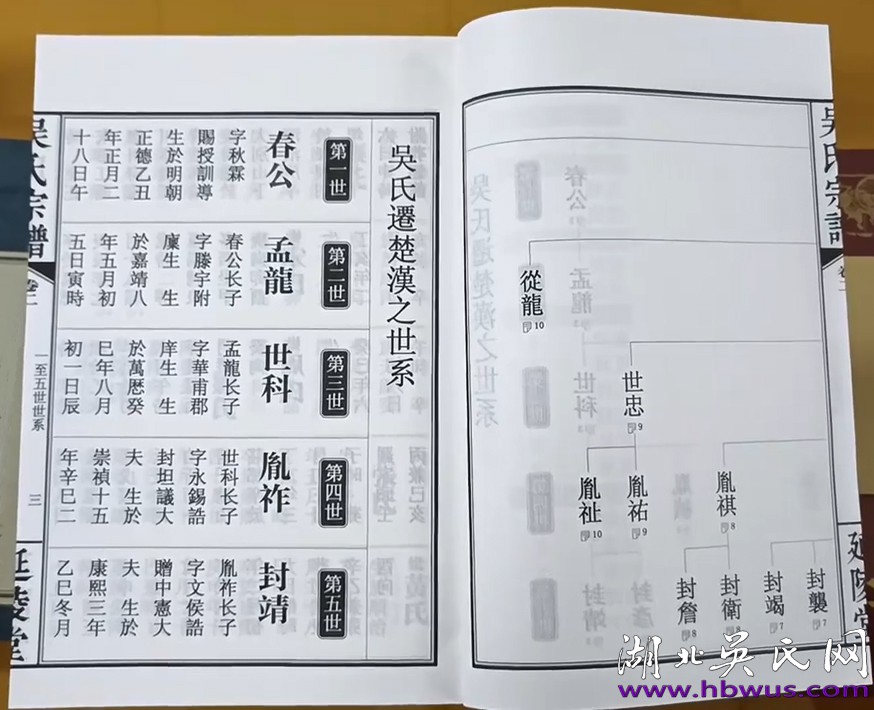 吳氏宗譜
延陵堂
從龍
10
世忠
9
胤祺
8
胤祐
9
胤祉
10
封襲
7
封竭
7
封衛
8
封詹
8
吳氏遷楚漢之世系
第一世
春公
字秋霖
賜授訓導
生於明朝
正德乙丑
年正月二
十八日午
第二世
孟龍
春公长子
字滕宇附
廩生 生
於嘉靖八
年五月初
五日寅時
第三世
世科
孟龍长子
字華甫郡
庠生 生
於萬厯癸
巳年八月
初一日辰
第四世
胤祚
世科长子
字永錫誥
封坦議大
夫 生於
崇禎十五
年辛巳二
第五世
封靖
胤祚长子
字文侯誥
贈中憲大
夫 生於
康熙三年
乙巳冬月
吳氏宗譜
一至五世世系
三
延陵堂
湖北吴氏网
www.hbwus.com